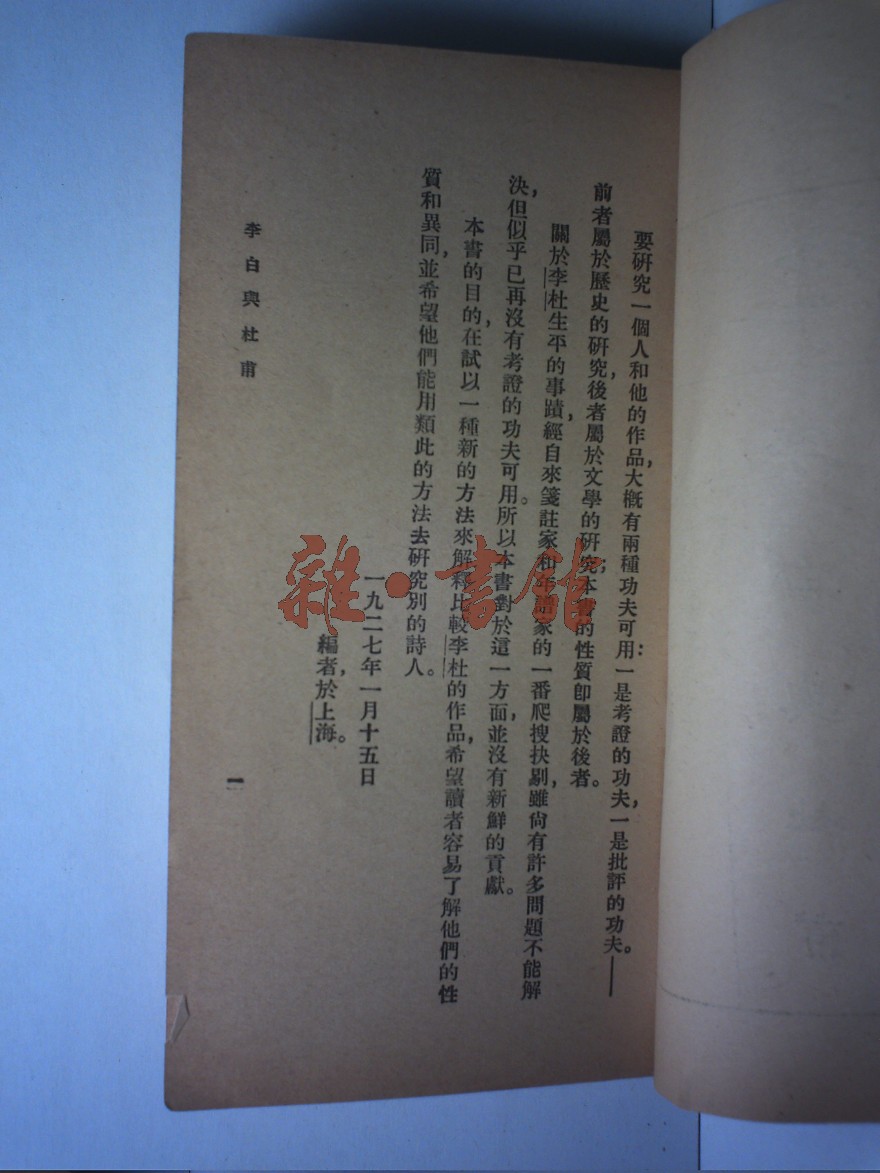 要研究一個人和他的作品，大概有兩種功夫可用：一是考證的功夫，一是批評的功夫。——
前者屬於歷史的研究，後者屬於文學的研究；本書的性質即屬於後者。
關於李杜生平的事蹟，經自來箋註家和年譜家的一番爬搜抉剔，雖尙有許多問題不能解
決，但似乎已再沒有考證的功夫可用。所以本書對於這一方面，並沒有新鮮的貢獻。
本書的目的，在試以一種新的方法來解釋比較李杜的作品，希望讀者容易了解他們的性
質和異同，並希望他們能用類此的方法去研究別的詩人。
一九二七年一月十五日
編者，於上海。
李白與杜甫
一
雜·書館